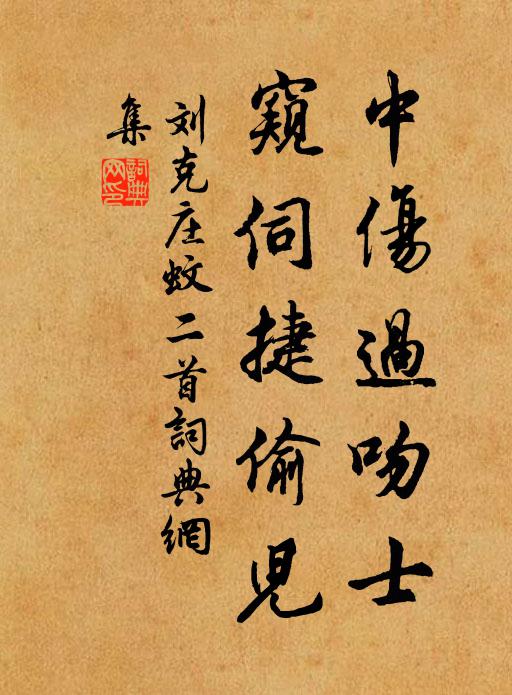 中傷過吻士
窺伺捷偷児
刘克庄蚊二首詞典網
集
詞典
网印